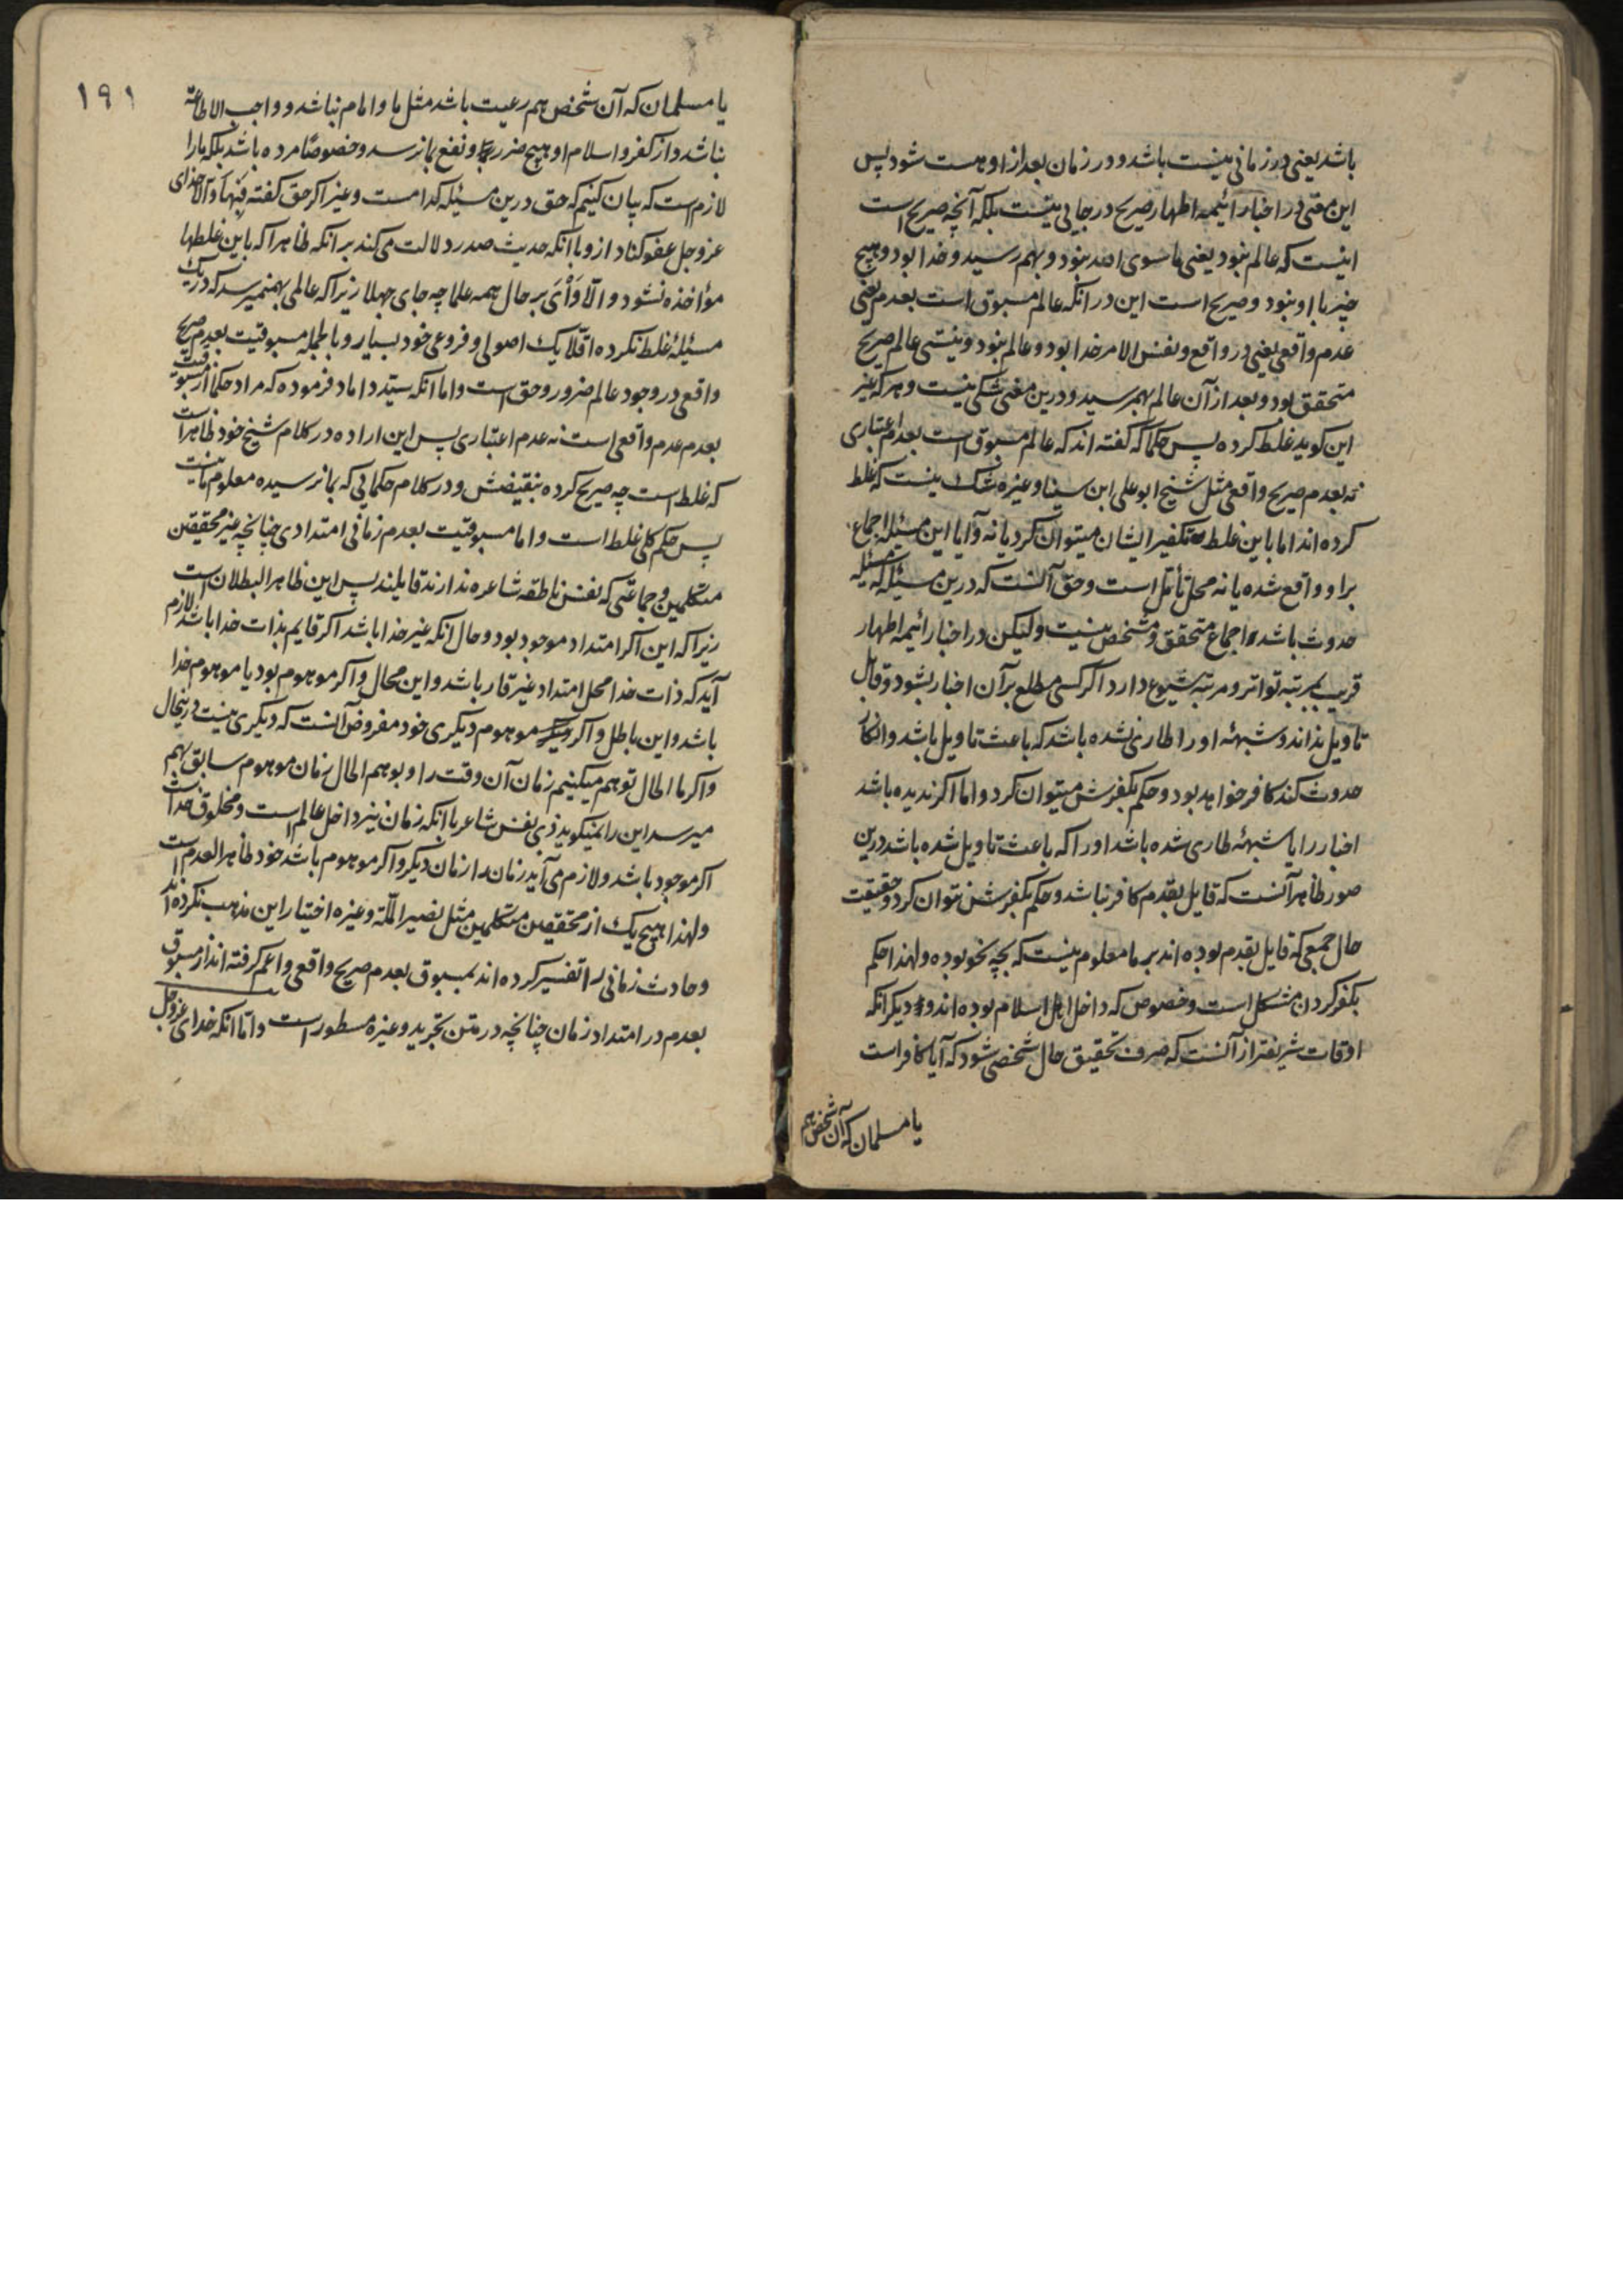 باشد یعنی در زمانی نیست باشد و در زمان بعد از او هست شود پس
این معنی در اخبار ائیمه اطهار صریح در جایی نیست بلکه آنچه صریح است
اینست که عالم نبود یعنی ما سوی الله نبود و بهم رسید و خدا بود و هیچ
چیز با او نبود و صریح است این در انکه عالم مسبوق است بعدم یعنی
عدم واقعی یعنی در واقع و نفس الامر خدا بود و عالم نبود و نیستی عالم صریح
متحقق بود و بعد از آن عالم بهم رسید و درین معنی شکی نیست و هرکه غیر
این کوید غلط کرده پس حکما که گفته اند که عالم مسبوق است بعدم اعتباری
نه بعدم صریح واقعی مثل شیخ ابو علی ابن سینا و غیره شک نیست که غلط
کرده اند اما باین غلط تکفیر ایشان میتوان کرد یا نه و آیا این مسئله اجماع
برا و واقع شده یا نه محل تأمّل است و حق آنست که درین مسئله که مسئله
حدوث باشد اجماع متحقق و مشخص نیست و لیکن در اخبار ائیمه اطهار
قریب بمرتبه تواتر و مرتبه شیوع دارد اکر کسی مطلع بر آن اخبار بشود و قابل
تاویل نداند و شبهئه او را طاری نشده باشد که باعث تاویل باشد و انکار
حدوث کند کافر خواهد بود و حکم بکفرش میتوان کرد و اما اکر ندیده باشد
اخبار را یا شبهئه طاری شده باشد او را که باعث تاویل شده باشد درین
صور ظاهر آنست که قایل بقدم کافر نباشد و حکم بکفرش نتوان کرد و حقیقت
حال جمعی که قایل بقدم بوده اند بر ما معلوم نیست که بچه نحو بوده و لهذا حکم
بکفر کردن مشکل است و خصوص که داخل اهل اسلام بوده اند و دیکر انکه
اوقات شریفتر از آنست که صرف تحقیق حال شخصی شود که آیا کافر است
یا مسلمان که آن شخص هم
۱۹۱
یا مسلمان که آن شخص هم رعیت باشد مثل ما و امام نباشد و واجب الاطاعة
نباشد و از کفر و اسلام او هیچ ضرر و نفع بما نرسد و خصوصًا مرده باشد بلکه ما را
لازم است که بیان کنیم که حق درین مسئله کدامست و غیر اکر حق گفته فبها و الّا خدای
عز و جل عفو کناد از و با آنکه حدیث صدر دلالت می کند بر انکه ظاهرا که باین غلطها
مؤاخذه نشود و الّا وای بر حال همه علما چه جای جهلا زیرا که عالمی بهم نمیرسد که در یک
مسئله غلط نکرده اقلّا یک اصولی و فروعی خود بسیار و بالجمله مسبوقیت بعدم صریح
واقعی در وجود عالم ضرور و حق است و اما انکه سیّد داماد فرموده که مراد حکما از مسبوقیت
بعدم عدم واقعی است نه عدم اعتباری پس این اراده در کلام شیخ خود ظاهر است
که غلط است چه صریح کرده بنقیضش و در کلام حکمایی که بما نرسیده معلوم ما نیست
پس حکم کلی غلط است و اما مسبوقیت بعدم زمانی امتدادی چنانچه غیر محققین
متکلمین و جماعتی که نفس ناطقه شاعره ندارند قایلند پس این ظاهر البطلان است
زیرا که این اکر امتداد موجود بود و حال انکه غیر خدا باشد اکر قایم بذات خدا باشد لازم
آید که ذات خدا محل امتداد غیر قار باشد و این محال و اکر موهوم بود یا موهوم خدا
باشد و این باطل و اکر موهوم دیکری خود مفروض آنست که دیکری نیست در اینحال
و اکر ما الحال توهم میکینم زمان آن وقت را و بوهم الحال زمان موهوم سابق بهم
میرسد این را نمیکوید ذی نفس شاعر با انکه زمان نیز داخل عالم است و مخلوق خداست
اکر موجود باشد و لازم می آید زمان را زمان دیکر و اکر موهوم باشد خود ظاهر العدم است
و لهذا هیچ یک از محققین متکلمین مثل نصیر الملّة و غیره اختیار این مذهب نکرده اند
و حادث زمانی را تفسیر کرده اند بمسبوق بعدم صریح واقعی و اعم کرفته اند از مسبوق
بعدم در امتداد زمان چنانچه در متن تجرید و غیره مسطور است و امّا انکه خدای عز و جل